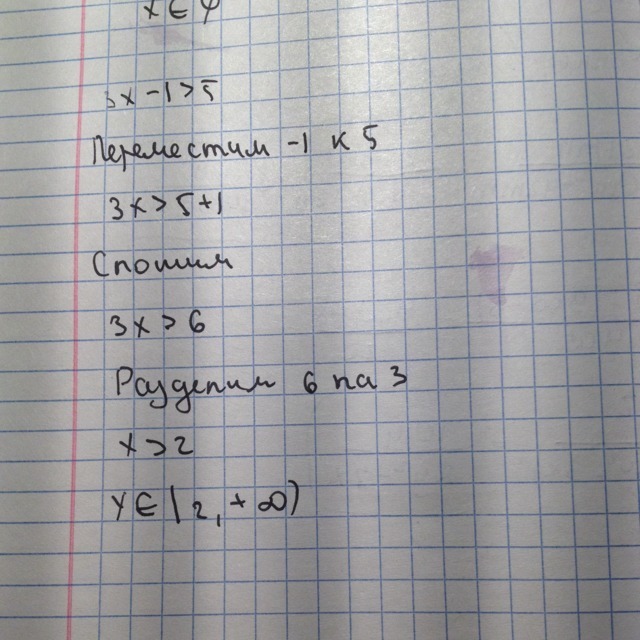 x ∈ φ
3x - 1 > 5
Переместим -1 к 5
3x > 5 + 1
Сложим
3x > 6
Разделим 6 на 3
x > 2
x ∈ (2, + ∞)